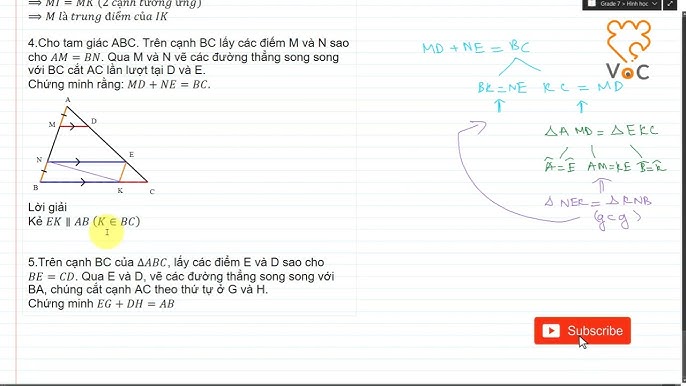 Grade 7 > Hình học
⟹ MI = MK (2 cạnh tương ứng)
⟹ M là trung điểm của IK
4.Cho tam giác ABC. Trên cạnh BC lấy các điểm M và N sao
cho AM = BN. Qua M và N vẽ các đường thẳng song song
với BC cắt AC lần lượt tại D và E.
Chứng minh rằng: MD + NE = BC.
A
M D
N E
B K C
Lời giải
Kẻ EK ∥ AB (K ∈ BC)
5.Trên cạnh BC của ΔABC, lấy các điểm E và D sao cho
BE = CD. Qua E và D, vẽ các đường thẳng song song với
BA, chúng cắt cạnh AC theo thứ tự ở G và H.
Chứng minh EG + DH = AB
MD + NE = BC
BK = NE KC = MD
ΔAMD = ΔEKC
Â = Ê AM = KE D̂ = K̂
ΔNEK = ΔKNB
(gcg)
VOC
Subscribe